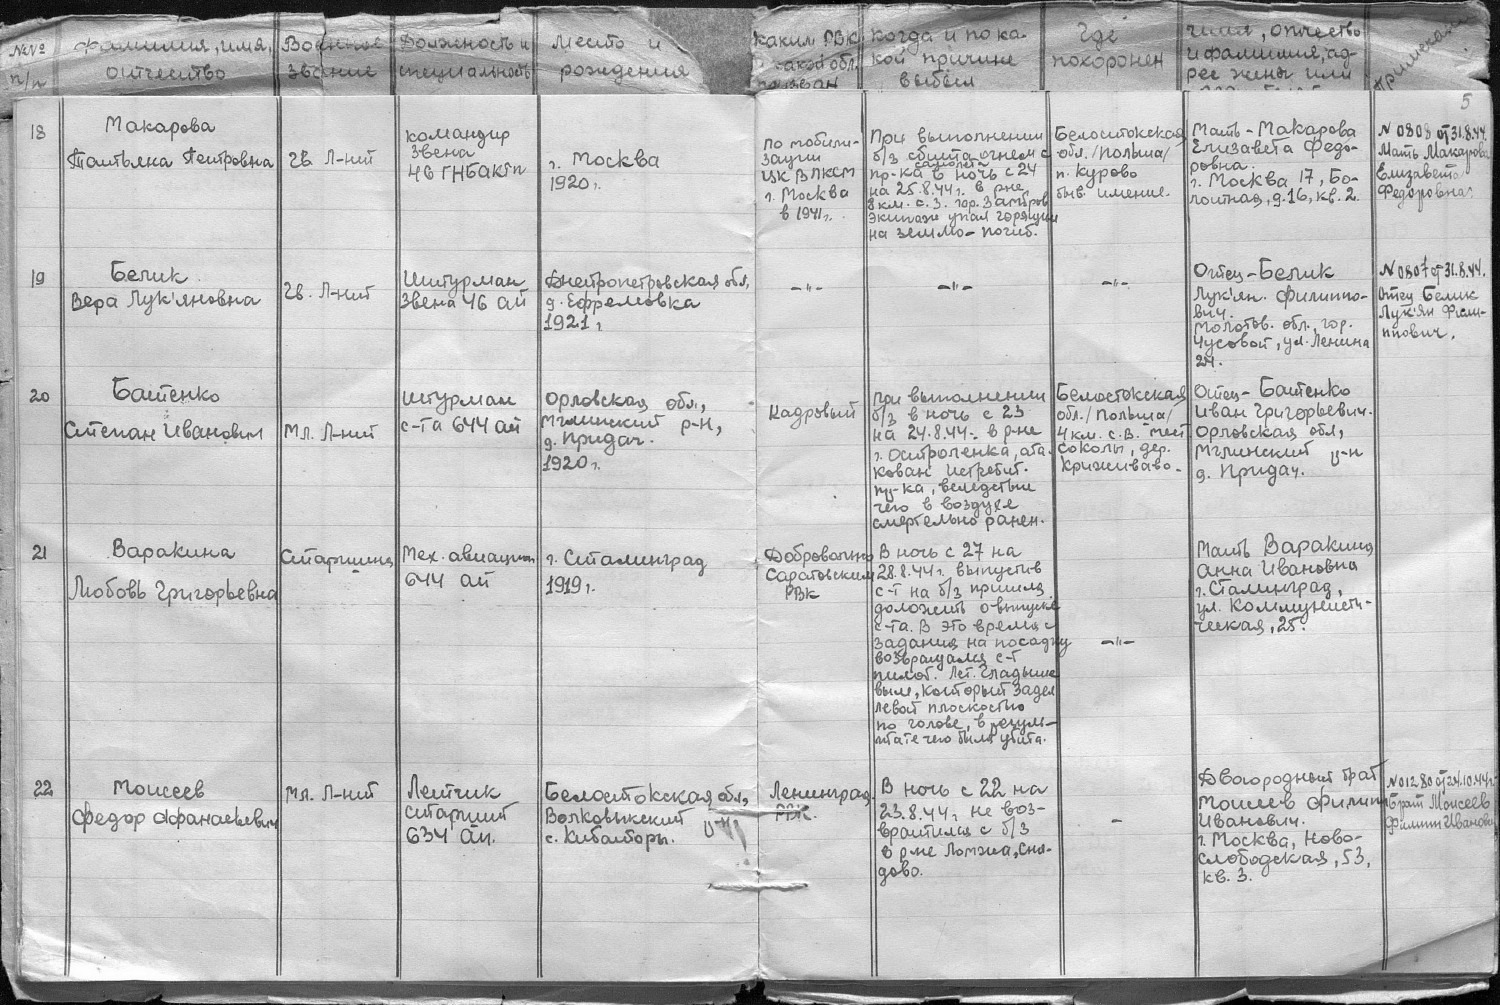 №№
п/п
Фамилия, имя,
отчество
Военное
звание
Должность и
специальность
Место и
рождения
Каким РВК
какой обл.
призван
Когда и по ка-
кой причине
выбыл
Где
похоронен
имя, отчество
и фамилия, ад-
рес жены или
Примечание
5
18
Макарова
Татьяна Петровна
Гв. Л-нт
командир
звена
46 ГНБАКТп
г. Москва
1920г.
По мобили-
зации
ЦК ВЛКСМ
г. Москва
в 1941г.
При выполнении
б/з сбита огнем с
самолета
пр-ка в ночь с 24
на 25.8.44г. в р-не
8 км. с.з. гор. Замбров
Экипаж упал горящим
на землю - погиб.
Белостокская
обл. /Польша/
п. Курово
быв. имение.
Мать - Макарова
Елизавета Федо-
ровна.
г. Москва 17, Бо-
лотная, д.16, кв. 2.
N 0808 от 31.8.44.
Мать Макарова
Елизавета
Федоровна.
19
Белик
Вера Лук'яновна
Гв. Л-нт
Штурман
звена 46 ап
Днепропетровская обл,
д. Ефремовка
1921г.
-"-
-"-
-"-
Отец - Белик
Лук'ян. Филиппо-
вич.
Молотов. обл., гор.
Чусовой, ул. Ленина
24.
N 0807 от 31.8.44.
Отец Белик
Лук'ян Фили-
ппович.
20
Батенко
Степан Иванович
Мл. Л-нт
штурман
с-та 644 ап
Орловская обл,
Мглинский р-н,
д. Придач.
1920г.
Кадровый
При выполнении
б/з в ночь с 23
на 24.8.44г. в р-не
г. Остроленка, ата-
кован истребит.
пр-ка, вследствие
чего в воздухе
смертельно ранен.
Белостокская
обл. /Польша/
4 км. с.в. мест
Соколы, дер.
Крижеваво.
Отец - Батенко
Иван Григорьевич.
Орловская обл,
Мглинский р-н
д. Придач.
21
Варакина
Любовь Григорьевна
Старшина
Мех. авиации
644 ап
г. Сталинград
1919г.
Добровольно
Саратовским
РВК
В ночь с 27 на
28.8.44г. выпустив
с-т на б/з пришла
доложить о выпуске
с-та. В это время с
задания на посадку
возвращался с-т
пилот. Лет. Гладыше
вым, который задел
левой плоскостью
по голове, в резуль-
тате чего была убита.
-"-
Мать Варакина
Анна Ивановна
г. Сталинград,
ул. Коммунисти-
ческая, 25.
22
Моисеев
Федор Афанасьевич
Мл. Л-нт
Летчик
старший
634 ап.
Белостокская обл,
Волковыкский р-н
с. Кибаторы.
Ленинград.
РВК.
В ночь с 22 на
23.8.44г. не воз-
вратился с б/з
в р-не Ломжа, Сня-
дово.
-
Двоюродный брат
Моисеев Филипп
Иванович.
г. Москва, Ново-
слободская, 53,
кв. 3.
N 01280 от 24.10.44г.
брат Моисеев
Филипп Иванович